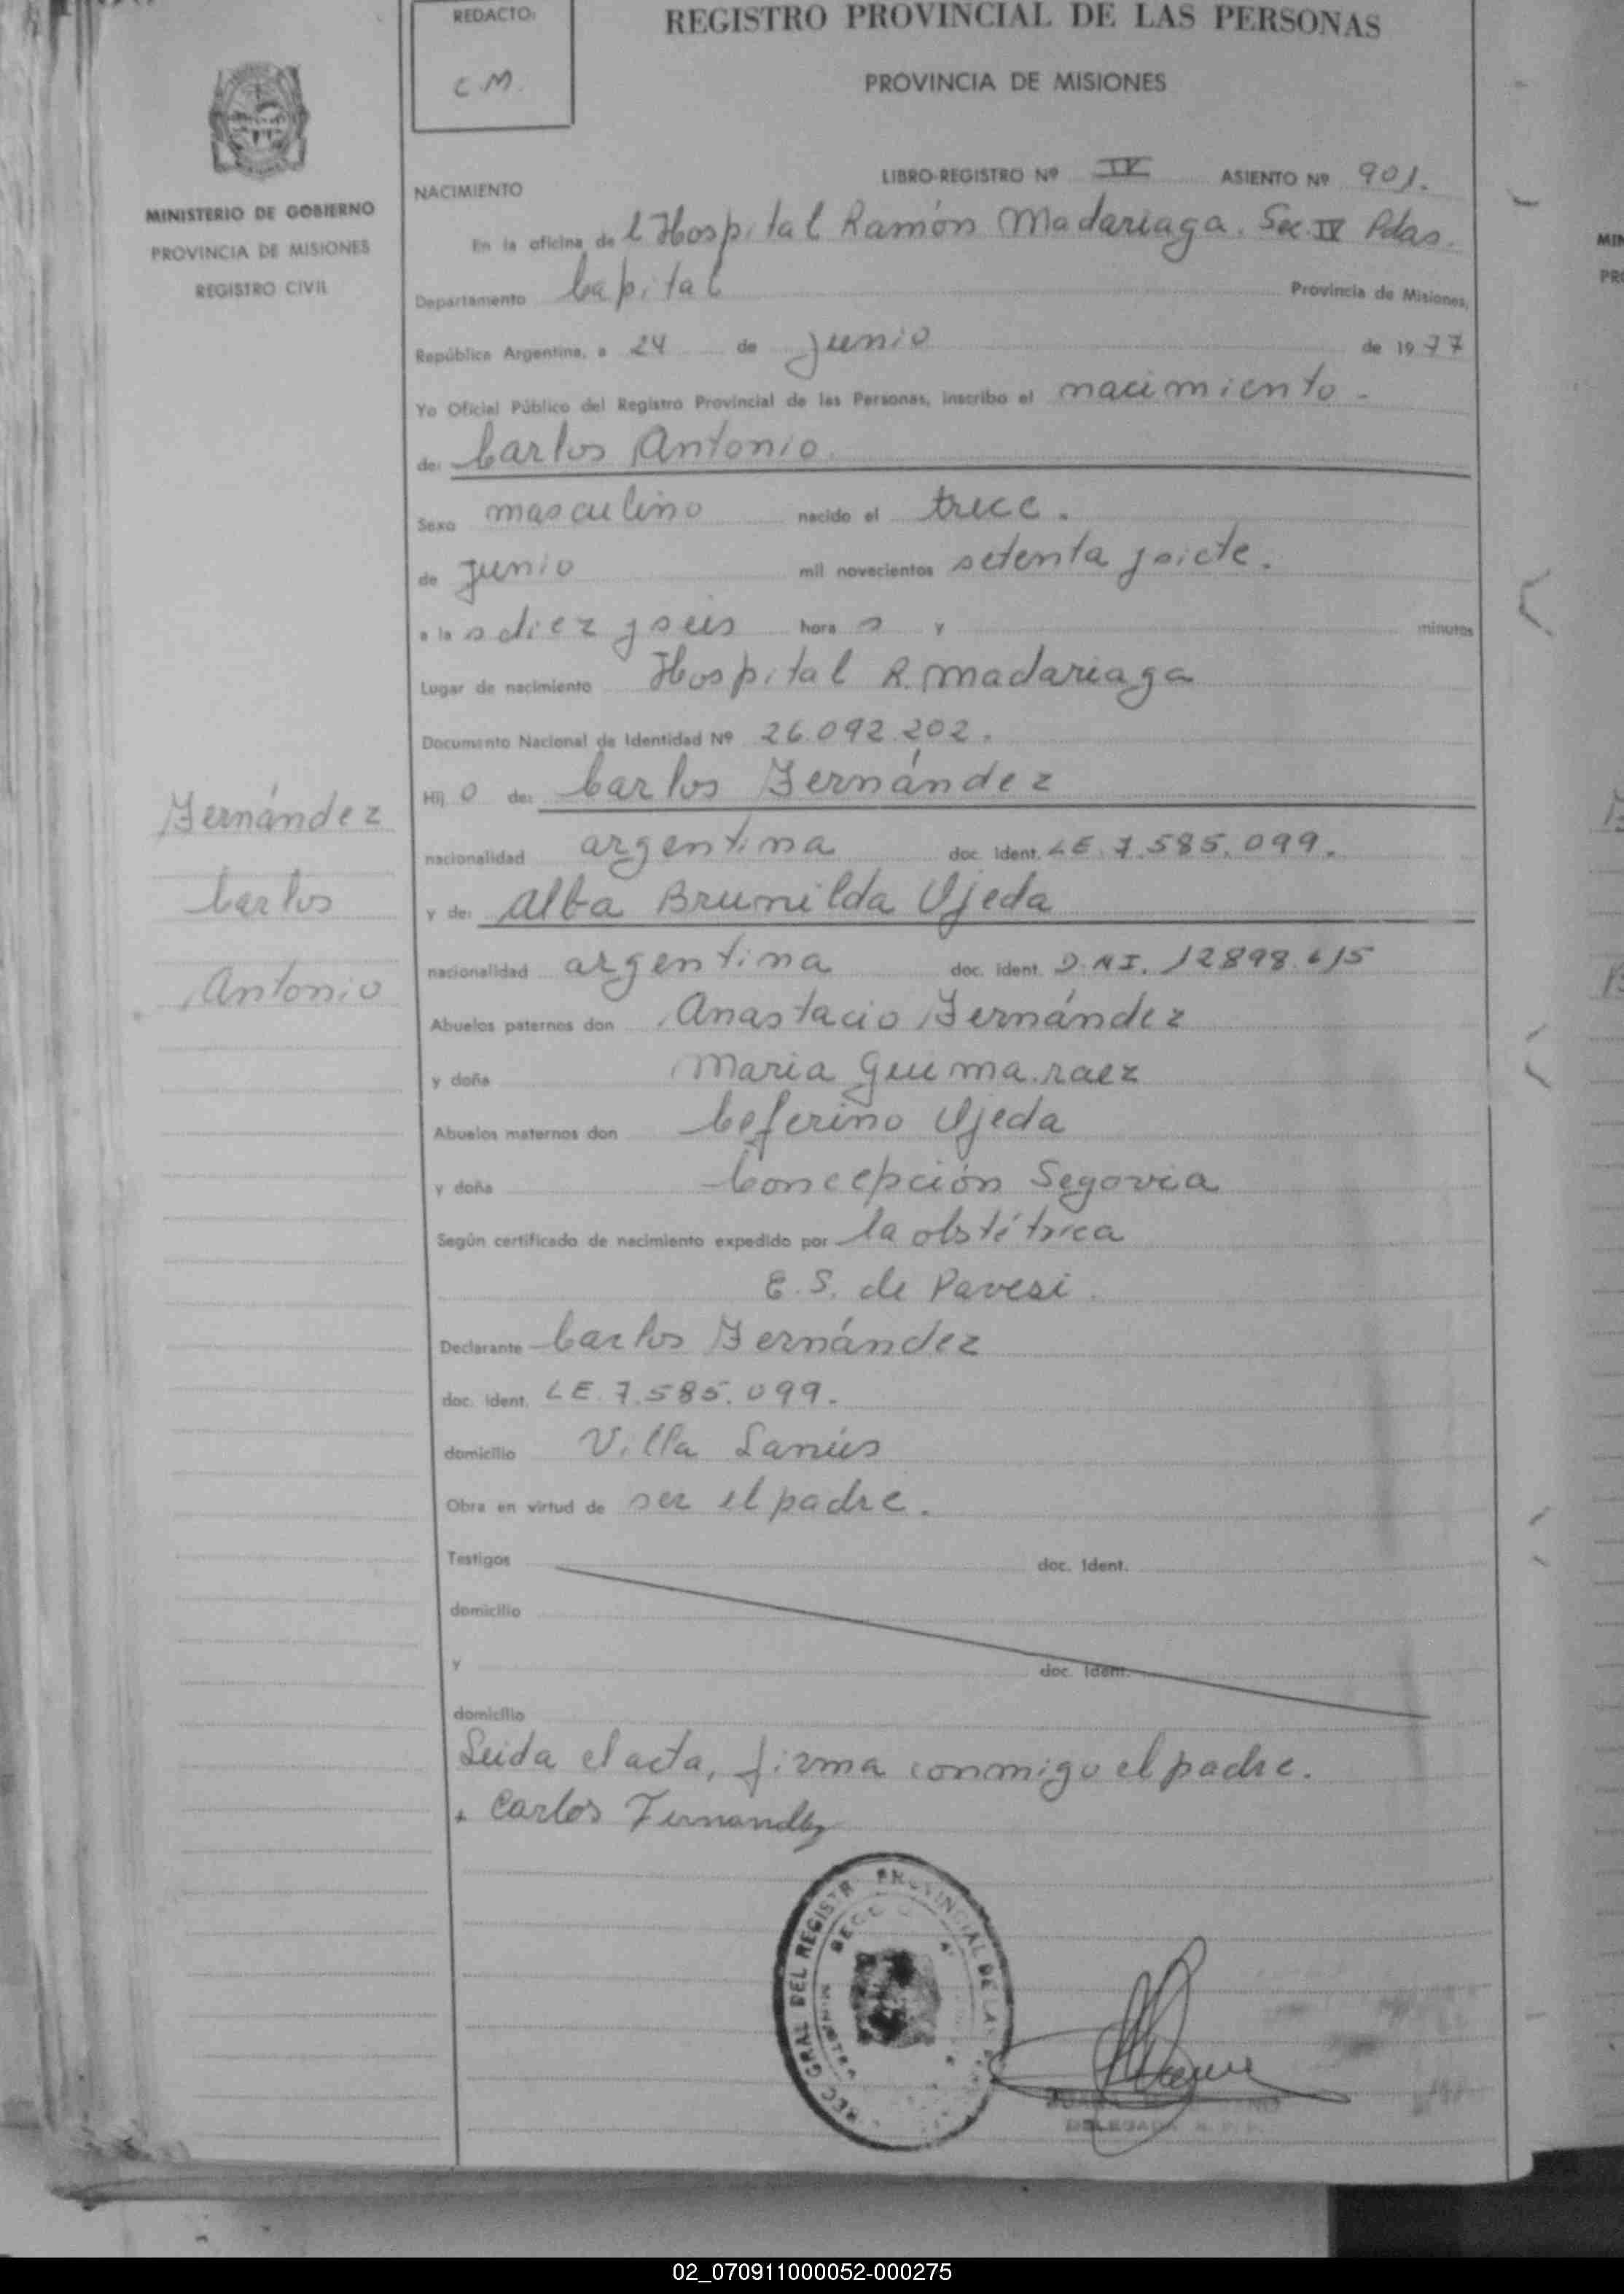 REDACTO:
C.M.
REGISTRO PROVINCIAL DE LAS PERSONAS
PROVINCIA DE MISIONES
MINISTERIO DE GOBIERNO
PROVINCIA DE MISIONES
REGISTRO CIVIL
LIBRO-REGISTRO Nº IV ASIENTO Nº 901.
NACIMIENTO
En la oficina de l Hospital Ramón Madariaga. Sec. IV Pdas.
Departamento Capital Provincia de Misiones,
República Argentina, a 24 de junio de 1977
Yo Oficial Público del Registro Provincial de las Personas, inscribo el nacimiento.
de: Carlos Antonio
Sexo masculino nacido el trece.
de junio mil novecientos setenta y siete.
a la s diez y seis hora s y minutos
Lugar de nacimiento Hospital R. Madariaga
Documento Nacional de Identidad Nº 26.092.202.
Hij o de: Carlos Fernández
nacionalidad argentina doc. ident. LE. 7.585.099.
y de: Alba Brunilda Ojeda
nacionalidad argentina doc. ident. D.N.I. 12898.615
Abuelos paternos don Anastacio Fernández
y doña Maria Guimaraez
Abuelos maternos don Ceferino Ojeda
y doña Concepción Segovia
Según certificado de nacimiento expedido por la obstétrica
E. S. de Pavesi.
Declarante Carlos Fernández
doc. ident. LE. 7.585.099.
domicilio Villa Lanús
Obra en virtud de ser el padre.
Testigos doc. Ident.
domicilio
y doc. Ident.
domicilio
Leida el acta, firma conmigo el padre.
Carlos Fernandez
Fernández
Carlos
Antonio
GRAL DEL REGISTR PROVINCIAL DE LAS
DELEGADA
02_070911000052-000275